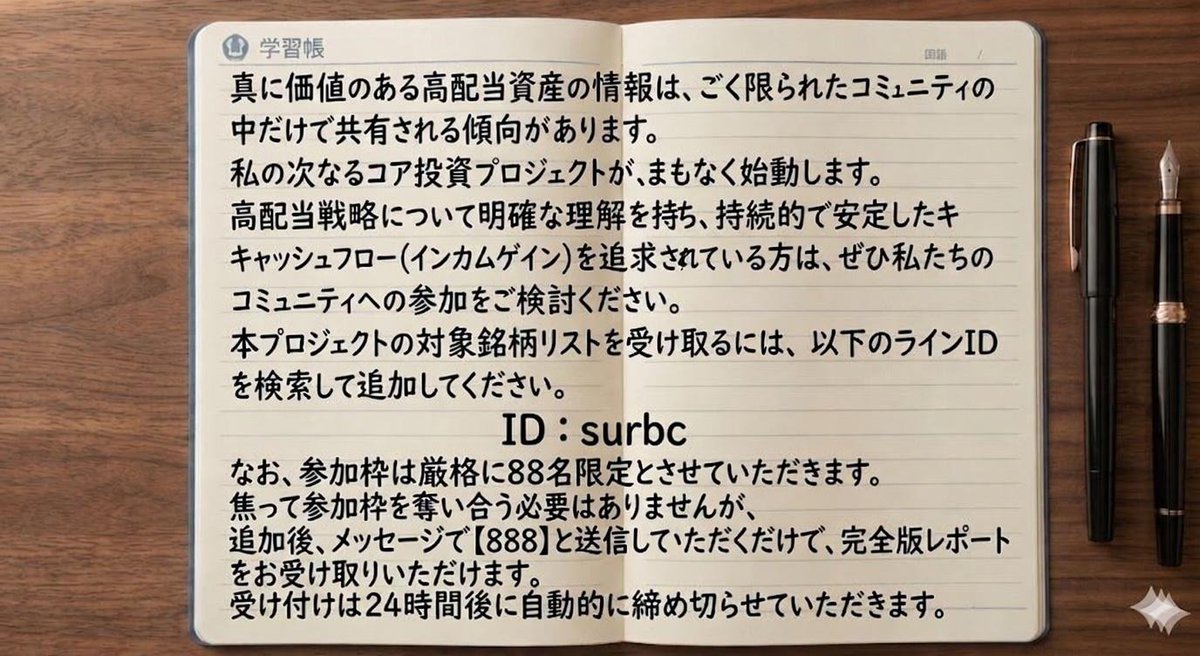 学習帳
国語 /
真に価値のある高配当資産の情報は、ごく限られたコミュニティの
中だけで共有される傾向があります。
私の次なるコア投資プロジェクトが、まもなく始動します。
高配当戦略について明確な理解を持ち、持続的で安定したキ
キャッシュフロー(インカムゲイン)を追求されている方は、ぜひ私たちの
コミュニティへの参加をご検討ください。
本プロジェクトの対象銘柄リストを受け取るには、以下のラインID
を検索して追加してください。
ID：surbc
なお、参加枠は厳格に88名限定とさせていただきます。
焦って参加枠を奪い合う必要はありませんが、
追加後、メッセージで【888】と送信していただくだけで、完全版レポート
をお受け取りいただけます。
受け付けは24時間後に自動的に締め切らせていただきます。